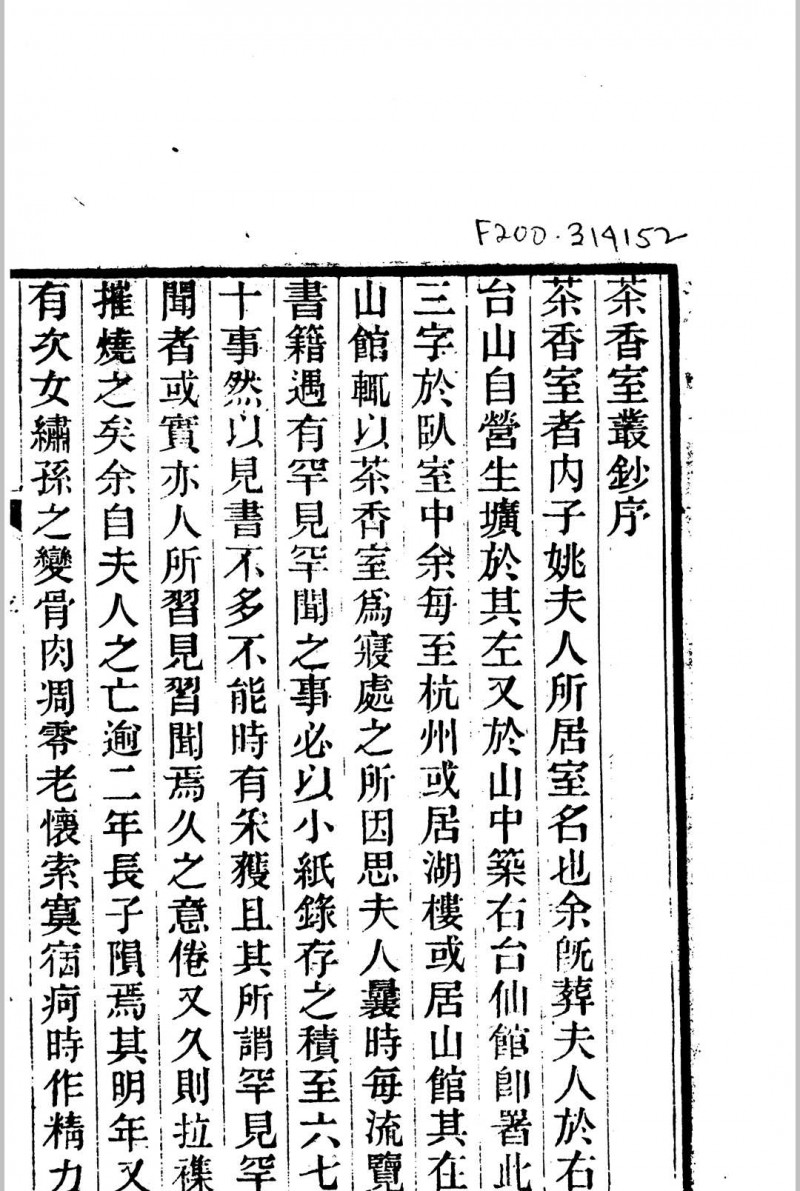 F200.314152
茶香室叢鈔序
茶香室者內子姚夫人所居室名也余旣葬夫人於右
台山自營生壙於其左又於山中築右台仙館卽署此
三字於臥室中余每至杭州或居湖樓或居山館其在
山館輒以茶香室爲寢處之所因思夫人曩時每流覽
書籍遇有罕見罕聞之事必以小紙錄存之積至六七
十事然以見書不多不能時有釆獲且其所謂罕見罕
聞者或實亦人所習見習聞焉久之意倦又久則拉襍
摧燒之矣余自夫人之亡逾二年長子隕焉其明年又
有次女繡孫之變骨肉凋零老懷索寞宿疴時作精力